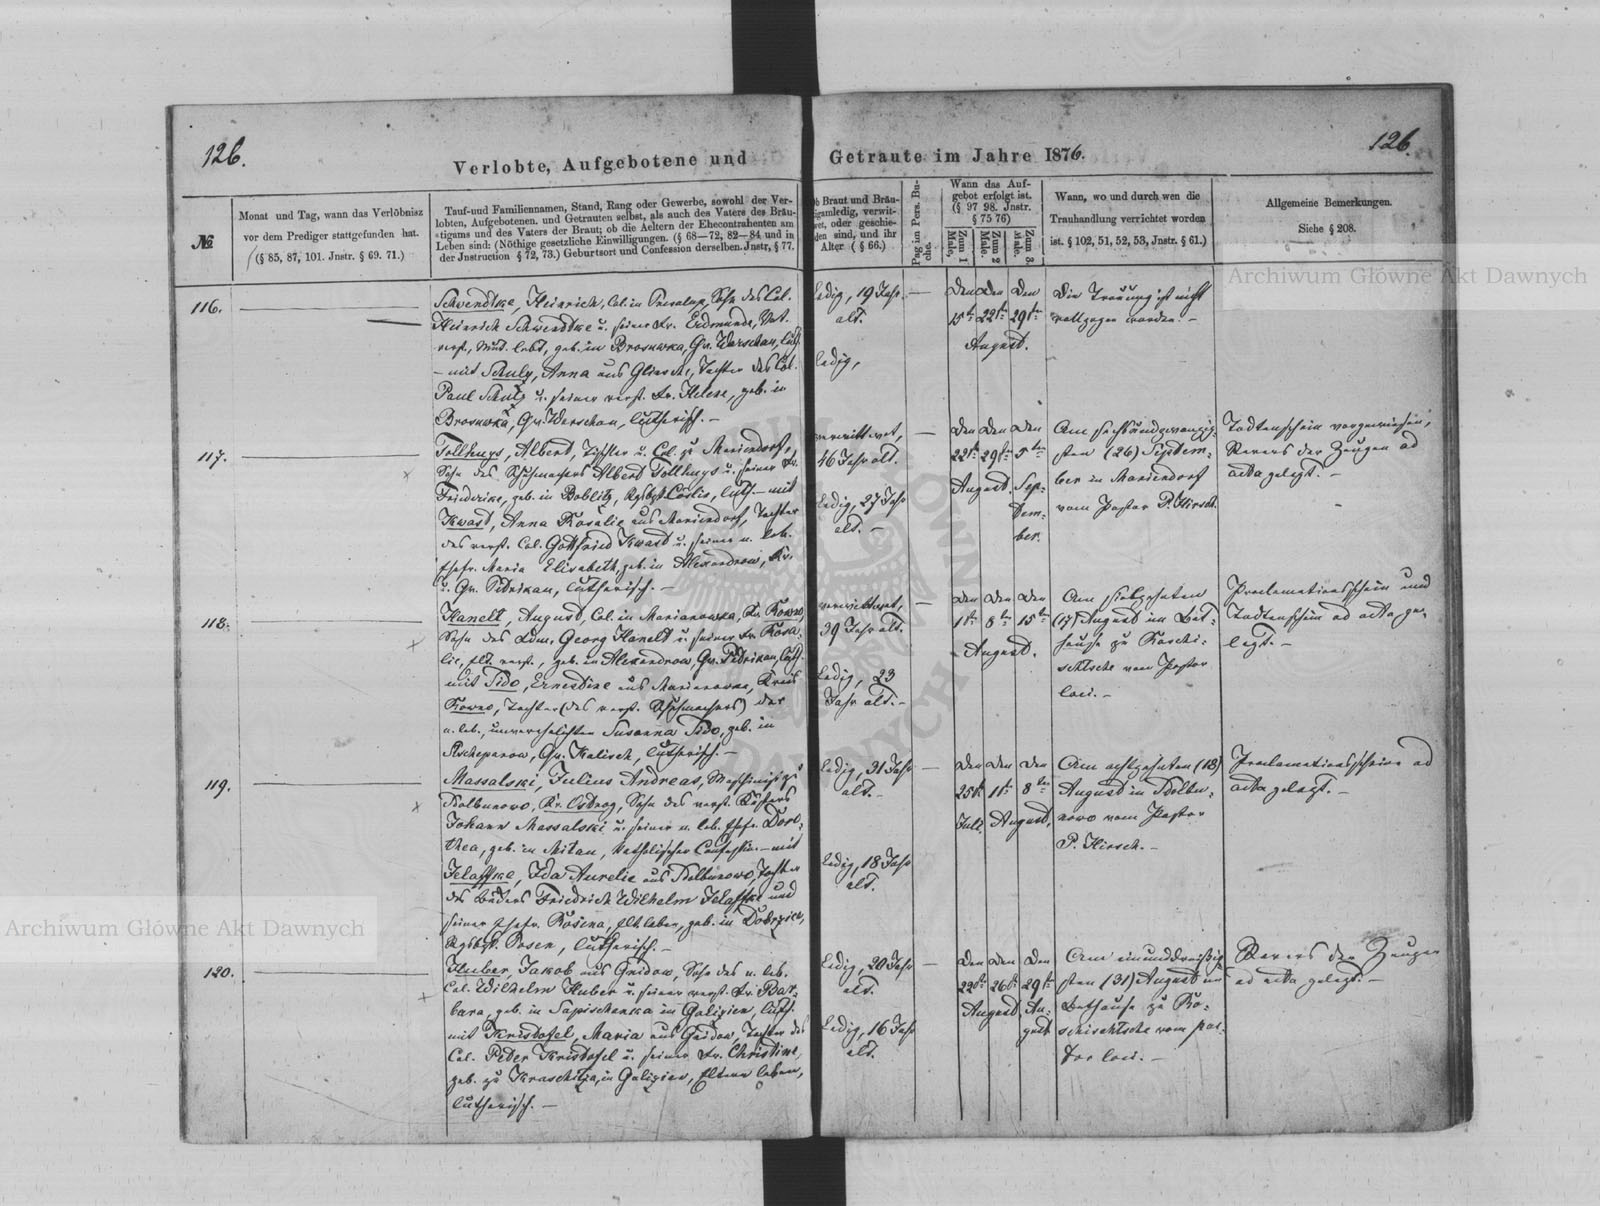 126.
126.
Verlobte, Aufgebotene und Getraute im Jahre 1876.
№
Monat und Tag, wann das Verlöbnisz
vor dem Prediger stattgefunden hat.
(§ 85, 87, 101. Jnstr. § 69. 71.)
Tauf-und Familiennamen, Stand, Rang oder Gewerbe, sowohl der Ver-
lobten, Aufgebotenen, und Getrauten selbst, als auch des Vaters des Bräu-
tigams und des Vaters der Braut; ob die Aeltern der Ehecontrahenten am
Leben sind: (Nöthige gesetzliche Einwilligungen. (§ 68—72, 82—84 und in
der Jnstruction § 72, 73.) Geburtsort und Confession derselben. Jnstr, § 77.
Ob Braut und Bräu-
tigam ledig, verwit-
wet, oder geschie-
den sind, und ihr
Alter (§ 66.)
Pag im Pers. Bu-
che.
Wann das Auf-
gebot erfolgt ist.
(§ 97 98. Jnstr.
§ 75 76)
Zum 1 Male,
Zum 2 Male.
Zum 3 Male.
Wann, wo und durch wen die
Trauhandlung verrichtet worden
ist. § 102, 51, 52, 53, Jnstr. § 61.)
Allgemeine Bemerkungen.
Siehe § 208.
116.
Schwendtke, Heinrich, Col. in
Sohn des Col.
Heinrich Schwendtke u. seiner Fr. Erdmunde, Vat.
verst., Mutt. lebt, geb. in Brosuwka, Gv. Warschau, luth.
– mit Schulz, Anna aus
Tochter des Col.
Paul Schulz u. seiner verst. Fr. Helene, geb. in
Brosuwka, Gv. Warschau, lutherisch. –
ledig, 19 Jahr
alt.
ledig,
den den den
15t 22t 29t
August.
Die Trauung ist nicht
vollzogen worden. –
117.
Tollhuys, Albert, Tischler u. Col. zu Mariendorf,
Sohn des Schuhmachers Albert Tollhuys u. seiner Fr.
Friederike, geb. in Boblitz, Rgsbzt Cöslin, luth. – mit
Kwast, Anna Rosalie aus Mariendorf, Tochter
des verst. Col. Gottfried Kwast u. seiner n. leb.
Ehefr. Maria Elisabeth, geb. in Alexandrow, Kr.
u. Gv. Petrikau, lutherisch. –
verwittwet,
46 Jahr alt.
ledig, 27 Jahr
alt. –
den den den
22t 29t 5ten
August. Sep-
tem-
ber.
Am sechsundzwanzig-
sten (26) Septem-
ber in Mariendorf
vom Pastor P. Hirsch.
Todtenschein vorgewiesen,
Revers der Zeugen ad
acta gelegt. –
118.
Hanelt, August, Col. in Marianowka, Kr. Kowno,
Sohn des Georg Hanelt u. seiner Fr. Rosa-
lie, Elt. verst., geb. in Alexandrow, Gv. Petrikau, luth.
mit Tido, Ernestine aus Marianowka, Kreis
Kowno, Tochter (des verst. Schuhmachers) der
n. leb., unverehelichten Susanna Tido, geb. in
Gv. Kalisch, lutherisch. –
verwittwet,
39 Jahr alt.
ledig, 23
Jahr alt. –
den den den
1t 8t 15t
August.
Am siebzehnten
(17) August im Bet-
hause zu Roschi-
schtsche vom Pastor
loci. –
Proclamationsschein und
Todtenschein ad acta ge-
legt. –
119.
Massalski, Julius Andreas, Maschinist zu
Kr. Ostrog, Sohn des verst. Küsters
Johann Massalski u. seiner n. leb. Ehefr. Doro-
thea, geb. in Mitau, katholischer Confession. – mit
Jelaffke, Ida Aurelie aus
Tochter
des Bäckers Friedrich Wilhelm Jelaffke und
seiner Ehefr. Rosina, Elt. leben, geb. in Dobrzica,
Rgsbzt. Posen, lutherisch. –
ledig, 31 Jahr
alt. –
ledig, 18 Jahr
alt.
den den den
25t 1t 8ten
Juli August.
Am achtzehnten (18)
August in
vom Pastor
P. Hirsch. –
Proclamationsschein ad
acta gelegt. –
120.
Huber, Jakob aus Gnidow, Sohn des n. leb.
Col. Wilhelm Huber u. seiner verst. Fr. Bar-
bara, geb. in Sapischanka in Galizien, luth.
mit Kristofel, Maria aus Gnidow, Tochter des
Col. Peter Kristofel u. seiner Fr. Christine,
geb. zu
in Galizien, Eltern leben,
lutherisch. –
ledig, 20 Jahr
alt.
ledig, 16 Jahr
alt.
den den den
22t 26t 29t
August Au-
gust
Am einunddreißig-
sten (31) August im
Bethause zu Ro-
schischtsche vom pas-
tor loci. –
Revers der Zeugen
ad acta gelegt. –
Archiwum Główne Akt Dawnych
Archiwum Główne Akt Dawnych